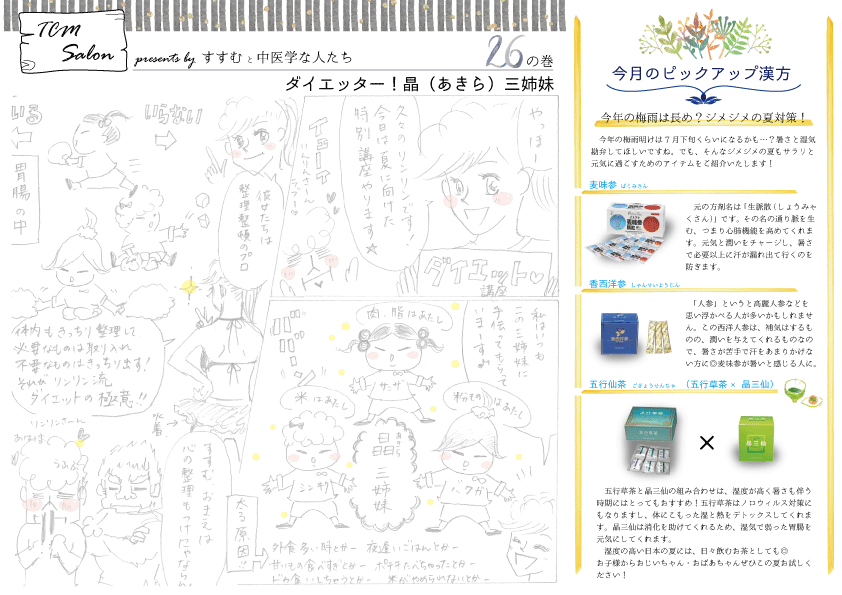 TCM
Salon
presents by すすむと中医学な人たち
26の巻
ダイエッター！晶（あきら）三姉妹
やっほー
久々のリンリンです！
今日は夏に向けた
特別講座やります★
ダイエット♡
講座
彼女たちは
整理整頓のプロ
いらない
いる
胃腸の中
体内もきっちり整理して
必要なものは取り入れ
不要なものはきっちり出す！
それがリンリン流
ダイエットの極意!!
私はいつも
この三姉妹に
手伝ってもらって
いまーすみ
肉、脂はあたし
サンザ
米はあたし
シンギク
粉もの
はあたし
バクガ
晶三姉妹
あきら
太る原因!!
外食多い時とかー 夜遅いごはんとかー
甘いもの食べすぎとかー ポテチたべちゃったとかー
ドカ食いしちゃうとかー 米がやめられないとかー
リンリンさーん
すすむ、おまえは
今月のピックアップ漢方
今年の梅雨は長め？ジメジメの夏対策！
今年の梅雨明けは７月下旬くらいになるかも…？暑さと湿気
勘弁してほしいですね。でも、そんなジメジメの夏もサラリと
元気に過ごすためのアイテムをご紹介いたします！
麦味参 ばくみさん
元の方剤名は「生脈散（しょうみゃ
くさん）」です。その名の通り脈を生
む、つまり心肺機能を高めてくれま
す。元気と潤いをチャージし、暑さ
で必要以上に汗が漏れ出て行くのを
防ぎます。
香西洋参 しゃんせいようじん
「人参」というと高麗人参などを
思い浮かべる人が多いかもしれませ
ん。この西洋人参は、補気はするも
のの、潤いを与えてくれるものなの
で、暑さが苦手で汗をあまりかけな
い方に◎麦味参が暑いと感じる人に。
五行仙茶 ごぎょうせんちゃ （五行草茶 × 晶三仙）
×
晶三仙
五行草茶と晶三仙の組み合わせは、湿度が高く暑さも伴う
時期にはとってもおすすめ！五行草茶はノロウィルス対策に
もなりますし、体にこもった湿と熱をデトックスしてくれま
す。晶三仙は消化を助けてくれるため、湿気で弱った胃腸を
元気にしてくれます。
湿度の高い日本の夏には、日々飲むお茶としても◎
お子様からおじいちゃん・おばあちゃんぜひこの夏お試しく
ださい！